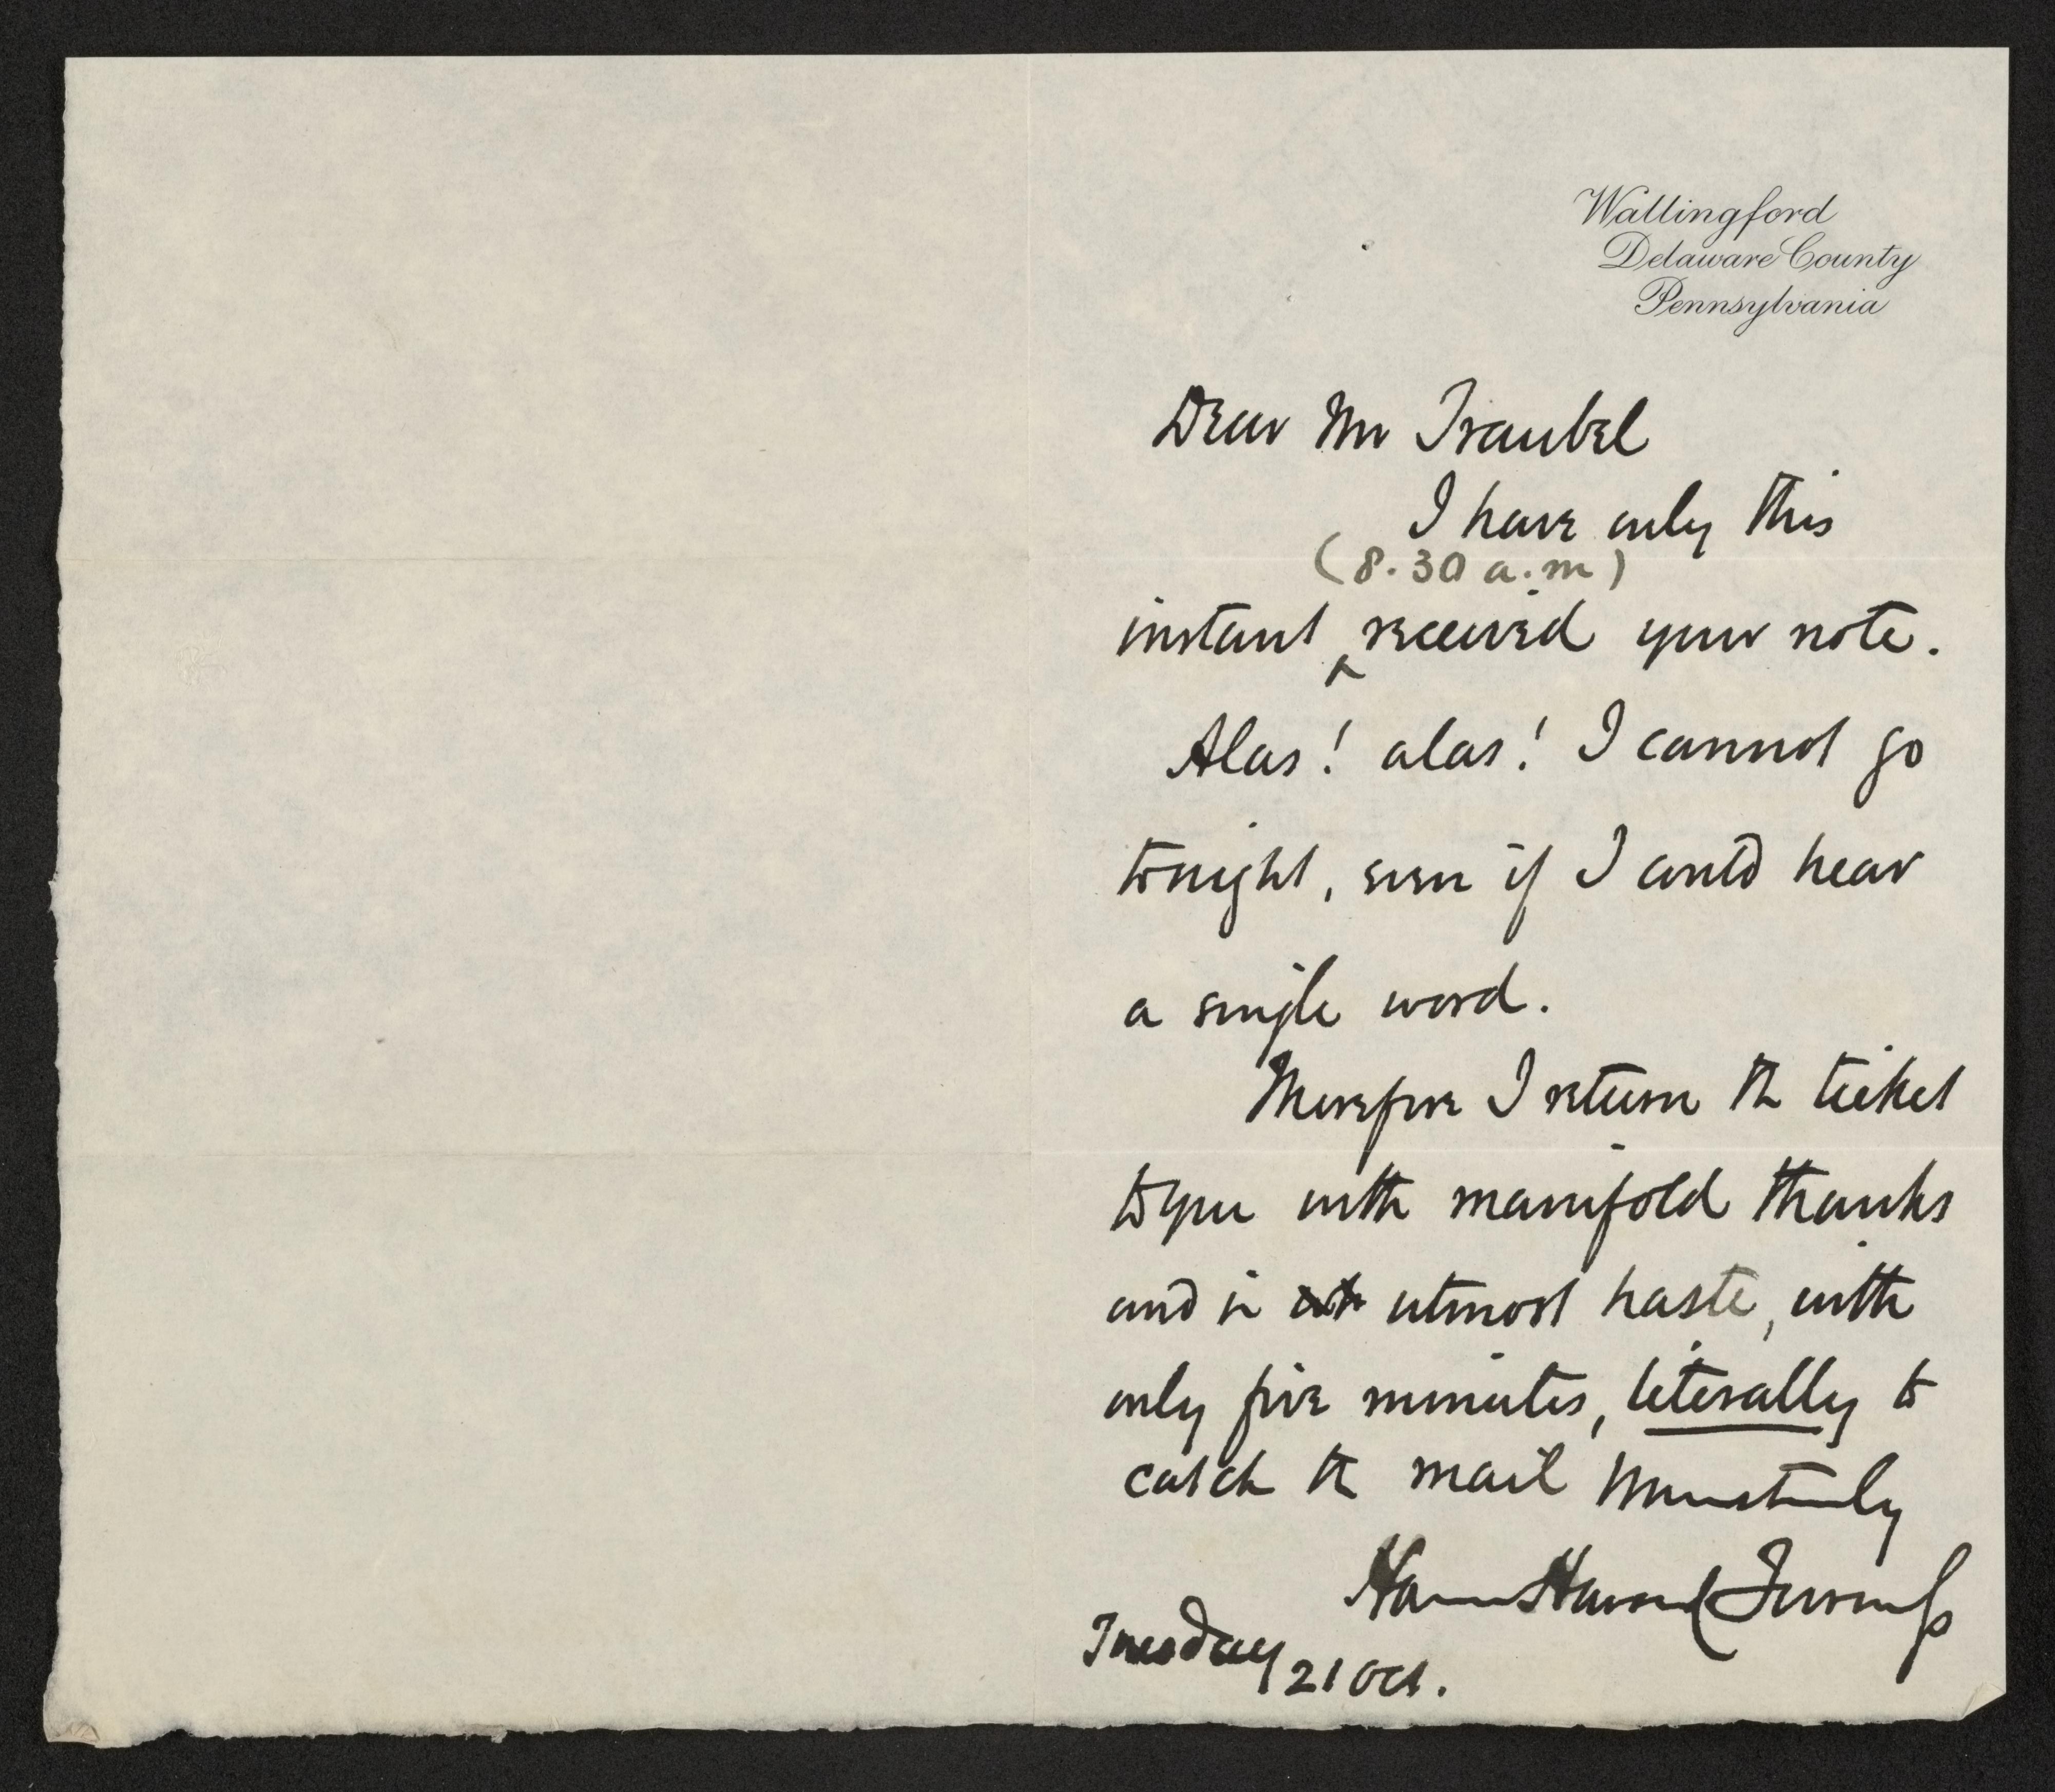 Wallingford
Delaware County
Pennsylvania
Dear Mr Traubel
I have only this
(8.30 a.m)
instant ^ received your note.
Alas! alas! I cannot go
tonight, even if I could hear
a single word.
Therefore I return the ticket
to you with manifold thanks
and in utmost haste, with
only five minutes, literally to
catch the mail Yours truly
Horace Howard Furness
Tuesday 21 Oct.